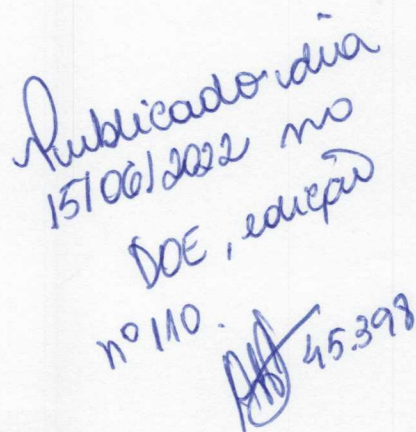 Publicado dia
15/06/2022 no
DOE, edição
nº 110.
45.398